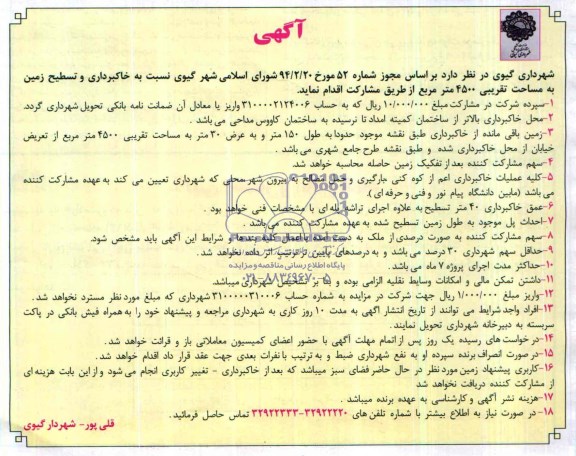 آگهی
شهرداری گیوی در نظر دارد بر اساس مجوز شماره ۵۲ مورخ ۹۴/۲/۲۰ شورای اسلامی شهر گیوی نسبت به خاکبرداری و تسطیح زمین
به مساحت تقریبی ۴۵۰۰ متر مربع از طریق مشارکت اقدام نماید.
۱-سپرده شرکت در مشارکت مبلغ ۱۰/۰۰۰/۰۰۰ ریال که به حساب ۳۱۰۰۰۰۲۱۲۴۰۰۶ واریز یا معادل آن ضمانت نامه بانکی تحویل شهرداری گردد.
۲-محل خاکبرداری بالاتر از ساختمان کمیته امداد تا نرسیده به ساختمان کاووس مداحی می باشد .
۳-زمین باقی مانده از خاکبرداری طبق نقشه موجود حدودا به طول ۱۵۰ متر و به عرض ۳۰ متر به مساحت تقریبی ۴۵۰۰ متر مربع از تعریض
خیابان از محل خاکبرداری شده و طبق نقشه طرح جامع شهری می باشد .
۴-سهم مشارکت کننده بعد از تفکیک زمین حاصله محاسبه خواهد شد.
۵-کلیه عملیات خاکبرداری اعم از کوه کنی ،بارگیری و حمل مصالح به بیرون شهر محلی که شهرداری تعیین می کند به عهده مشارکت کننده
می باشد (مابین دانشگاه پیام نور و فنی و حرفه ای )
۶-عمق خاکبرداری ۴۰ متر تسطیح به علاوه اجرای تراشه پله ای با مشخصات فنی خواهد بود .
۷-احداث پل موجود به طول زمین تسطیح شده به عهده مشارکت کننده می باشد .
۸-سهم مشارکت کننده به صورت درصدی از ملک به دست آمده با اعمال کلیه بندها و شرایط این آگهی باید مشخص شود.
۹-حداقل سهم شهرداری ۳۰ درصد می باشد و به درصدهای پایین تر ترتیب اثر داده نخواهد شد .
۱۰-حداکثر مدت اجرای پروژه ۷ ماه می باشد .
پایگاه اطلاع رسانی مناقصه و مزایده
۱۱-داشتن تمکن مالی و امکانات وسایط نقلیه الزامی بوده و بنا بر تشخیص شهرداری میباشد.
۰۲۱-۸۸۳۴۹۶۷۰-۵
۱۲-واریز مبلغ ۱/۰۰۰/۰۰۰ ریال جهت شرکت در مزایده به شماره حساب ۳۱۰۰۰۰۰۳۱۰۰۰۶ شهرداری که مبلغ مورد نظر مسترد نخواهد شد .
۱۳-افراد واجد شرایط می توانند از تاریخ انتشار آگهی به مدت ۱۰ روز کاری به شهرداری مراجعه و پیشنهاد خود را به همراه فیش بانکی در پاکت
سربسته به دبیرخانه شهرداری تحویل نمایند .
۱۴-درخواست های رسیده یک روز پس از اتمام مهلت آگهی با حضور اعضای کمیسیون معاملاتی باز و قرائت خواهد شد .
۱۵-در صورت انصراف برنده سپرده او به نفع شهرداری ضبط و به ترتیب با نفرات بعدی جهت عقد قرار داد اقدام خواهد شد .
۱۶-کاربری پیشنهاد زمین مورد نظر در حال حاضر فضای سبز میباشد که بعد از خاکبرداری - تغییر کاربری انجام می شود و از این بابت هزینه ای
از مشارکت کننده دریافت نخواهد شد
۱۷-هزینه نشر آگهی و کارشناسی به عهده برنده میباشد .
۱۸-در صورت نیاز به اطلاع بیشتر با شماره تلفن های ۳۲۹۲۲۲۲۰-۳۲۹۲۲۳۳۳ تماس حاصل فرمائید .
قلی پور- شهردار گیوی